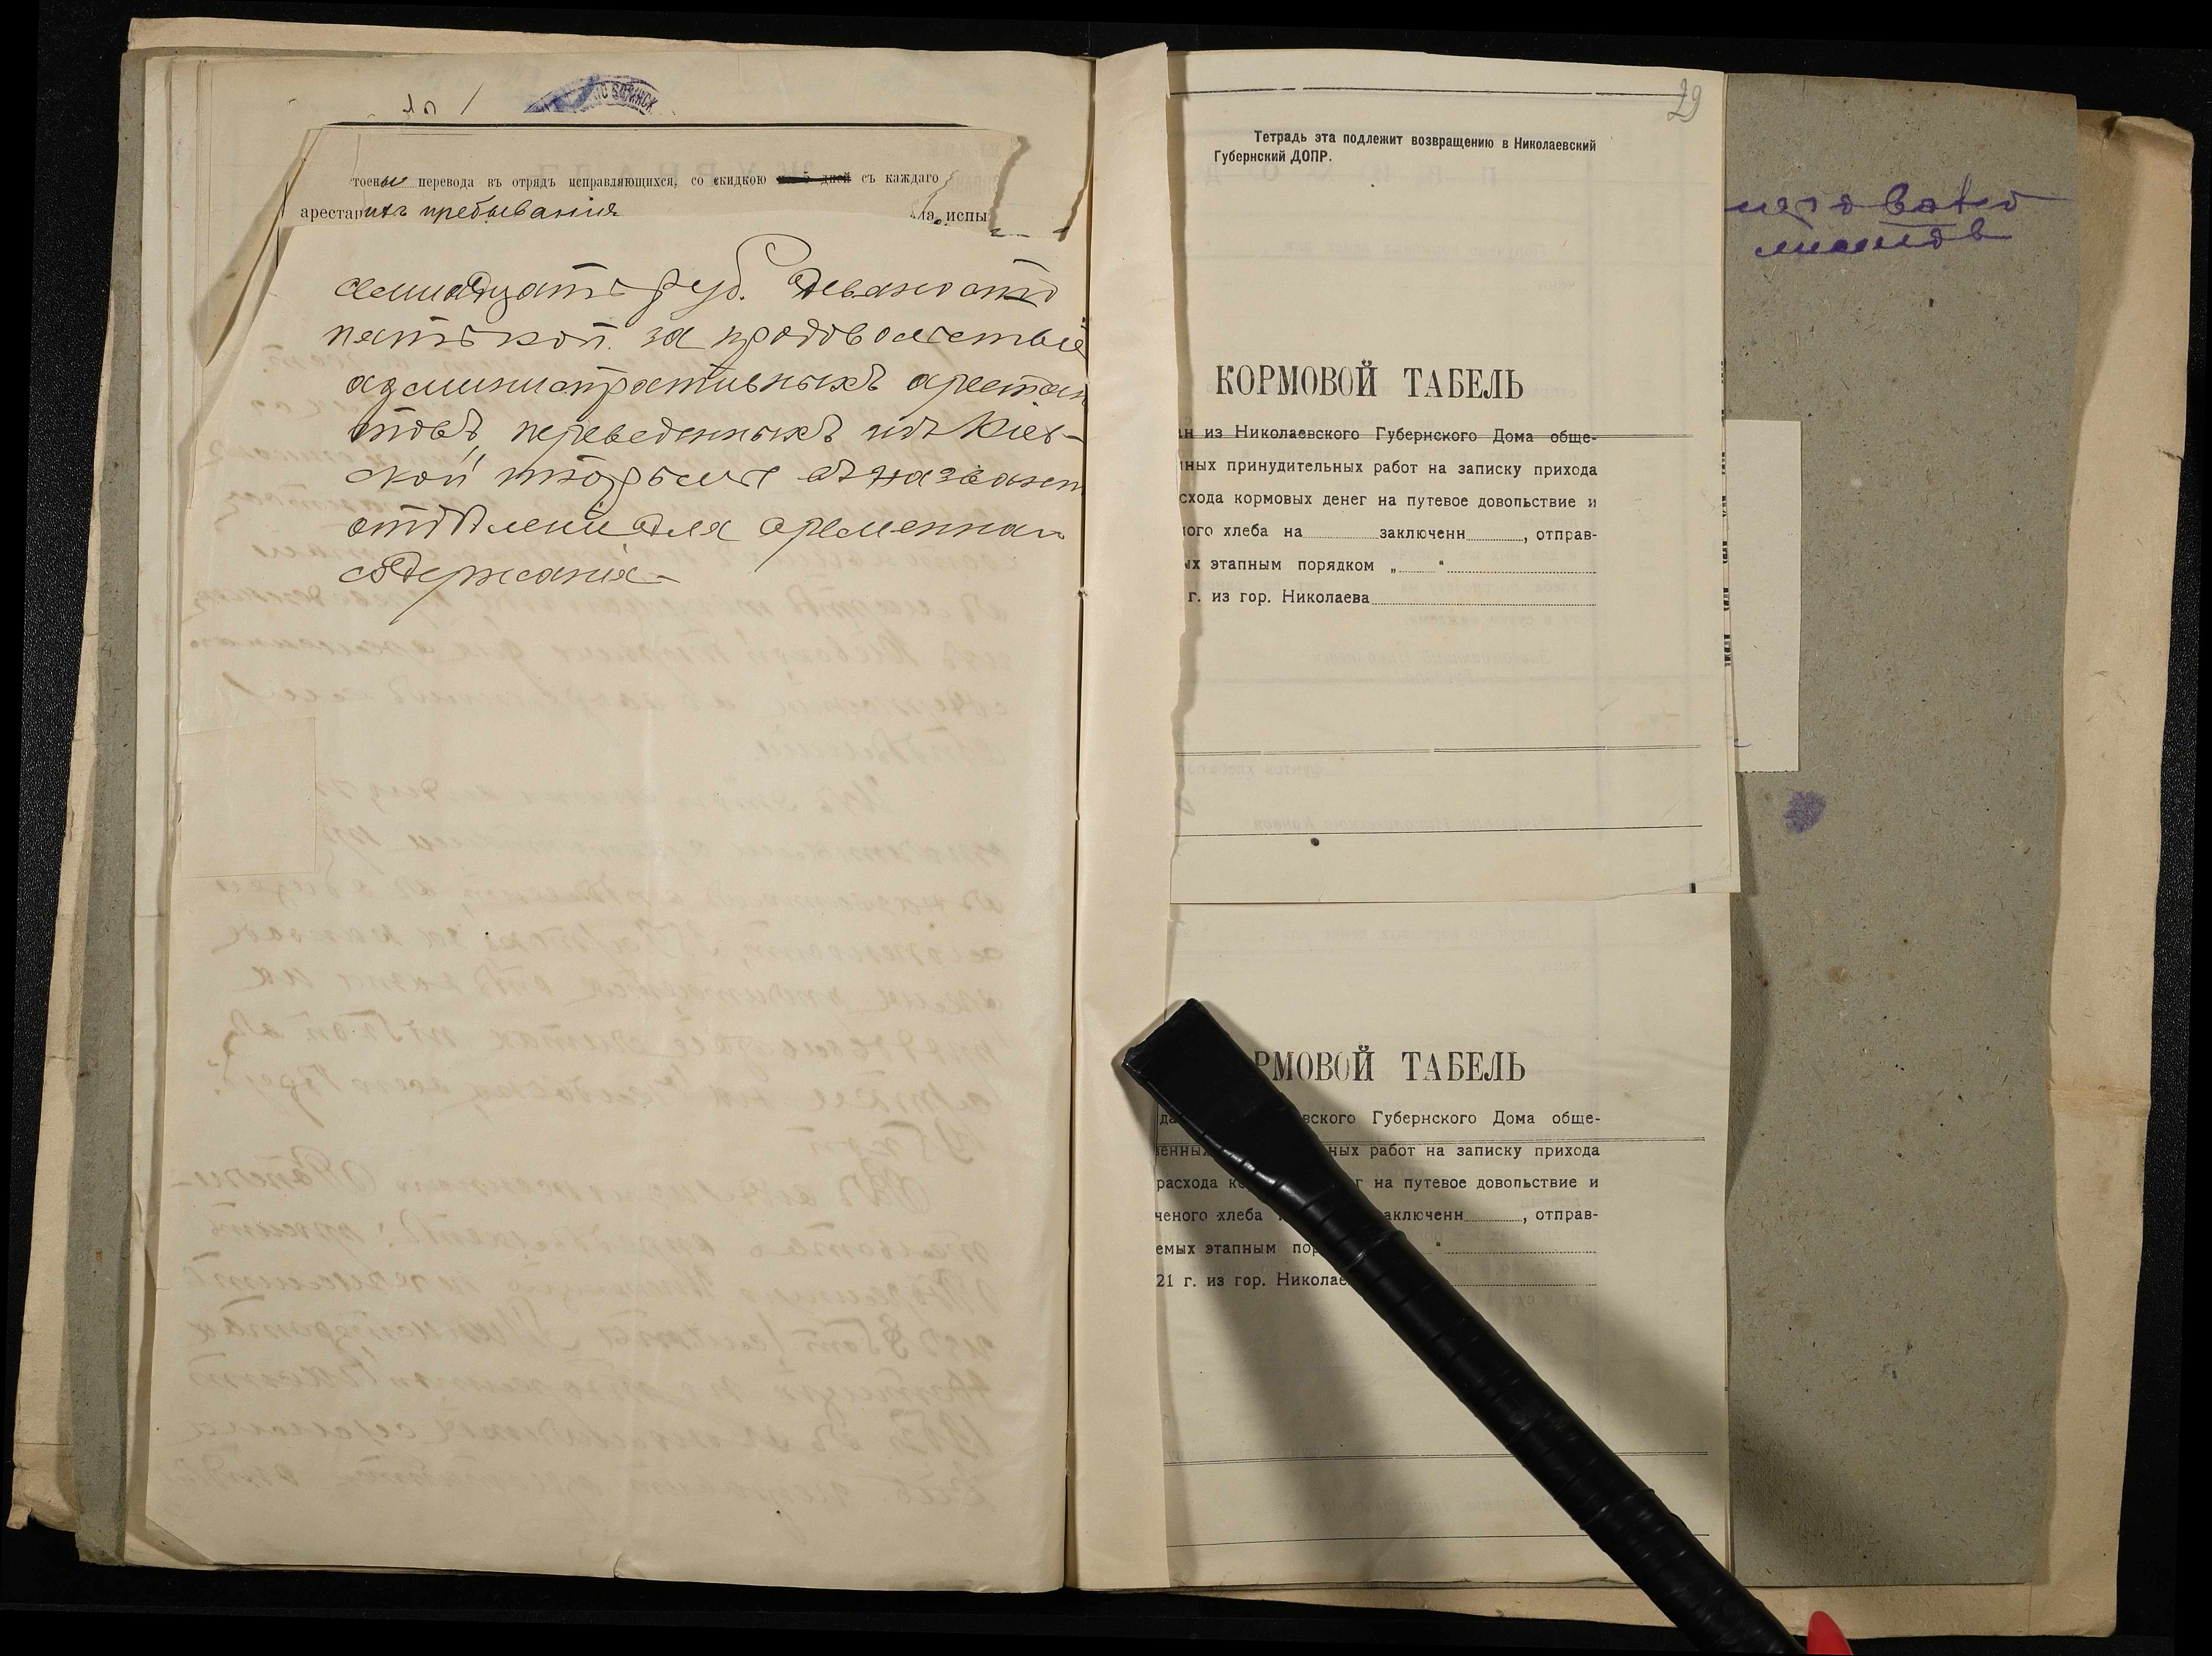 тоены перевода въ отрядъ исправляющихся, со скидкою по 5 дней съ каждаго
арестан ихъ пребыванія на испы
семнадцать руб. девяносто
пять коп. за продовольствіе
административныхъ арестан
товъ, переведенныхъ изъ Кіев-
ской тюрьмы въ названн
отдѣленіе для временнаго
содержанія
29
Тетрадь эта подлежит возвращению в Николаевский
Губернский ДОПР.
КОРМОВОЙ ТАБЕЛЬ
ан из Николаевского Губернского Дома обще-
нных принудительных работ на записку прихода
схода кормовых денег на путевое довольствие и
ного хлеба на заключенн , отправ-
ых этапным порядком „ “
г. из гор. Николаева
РМОВОЙ ТАБЕЛЬ
да вского Губернского Дома обще-
венных ных работ на записку прихода
расхода ко г на путевое довольствие и
ченого хлеба аключенн , отправ-
емых этапным пор “
21 г. из гор. Николае